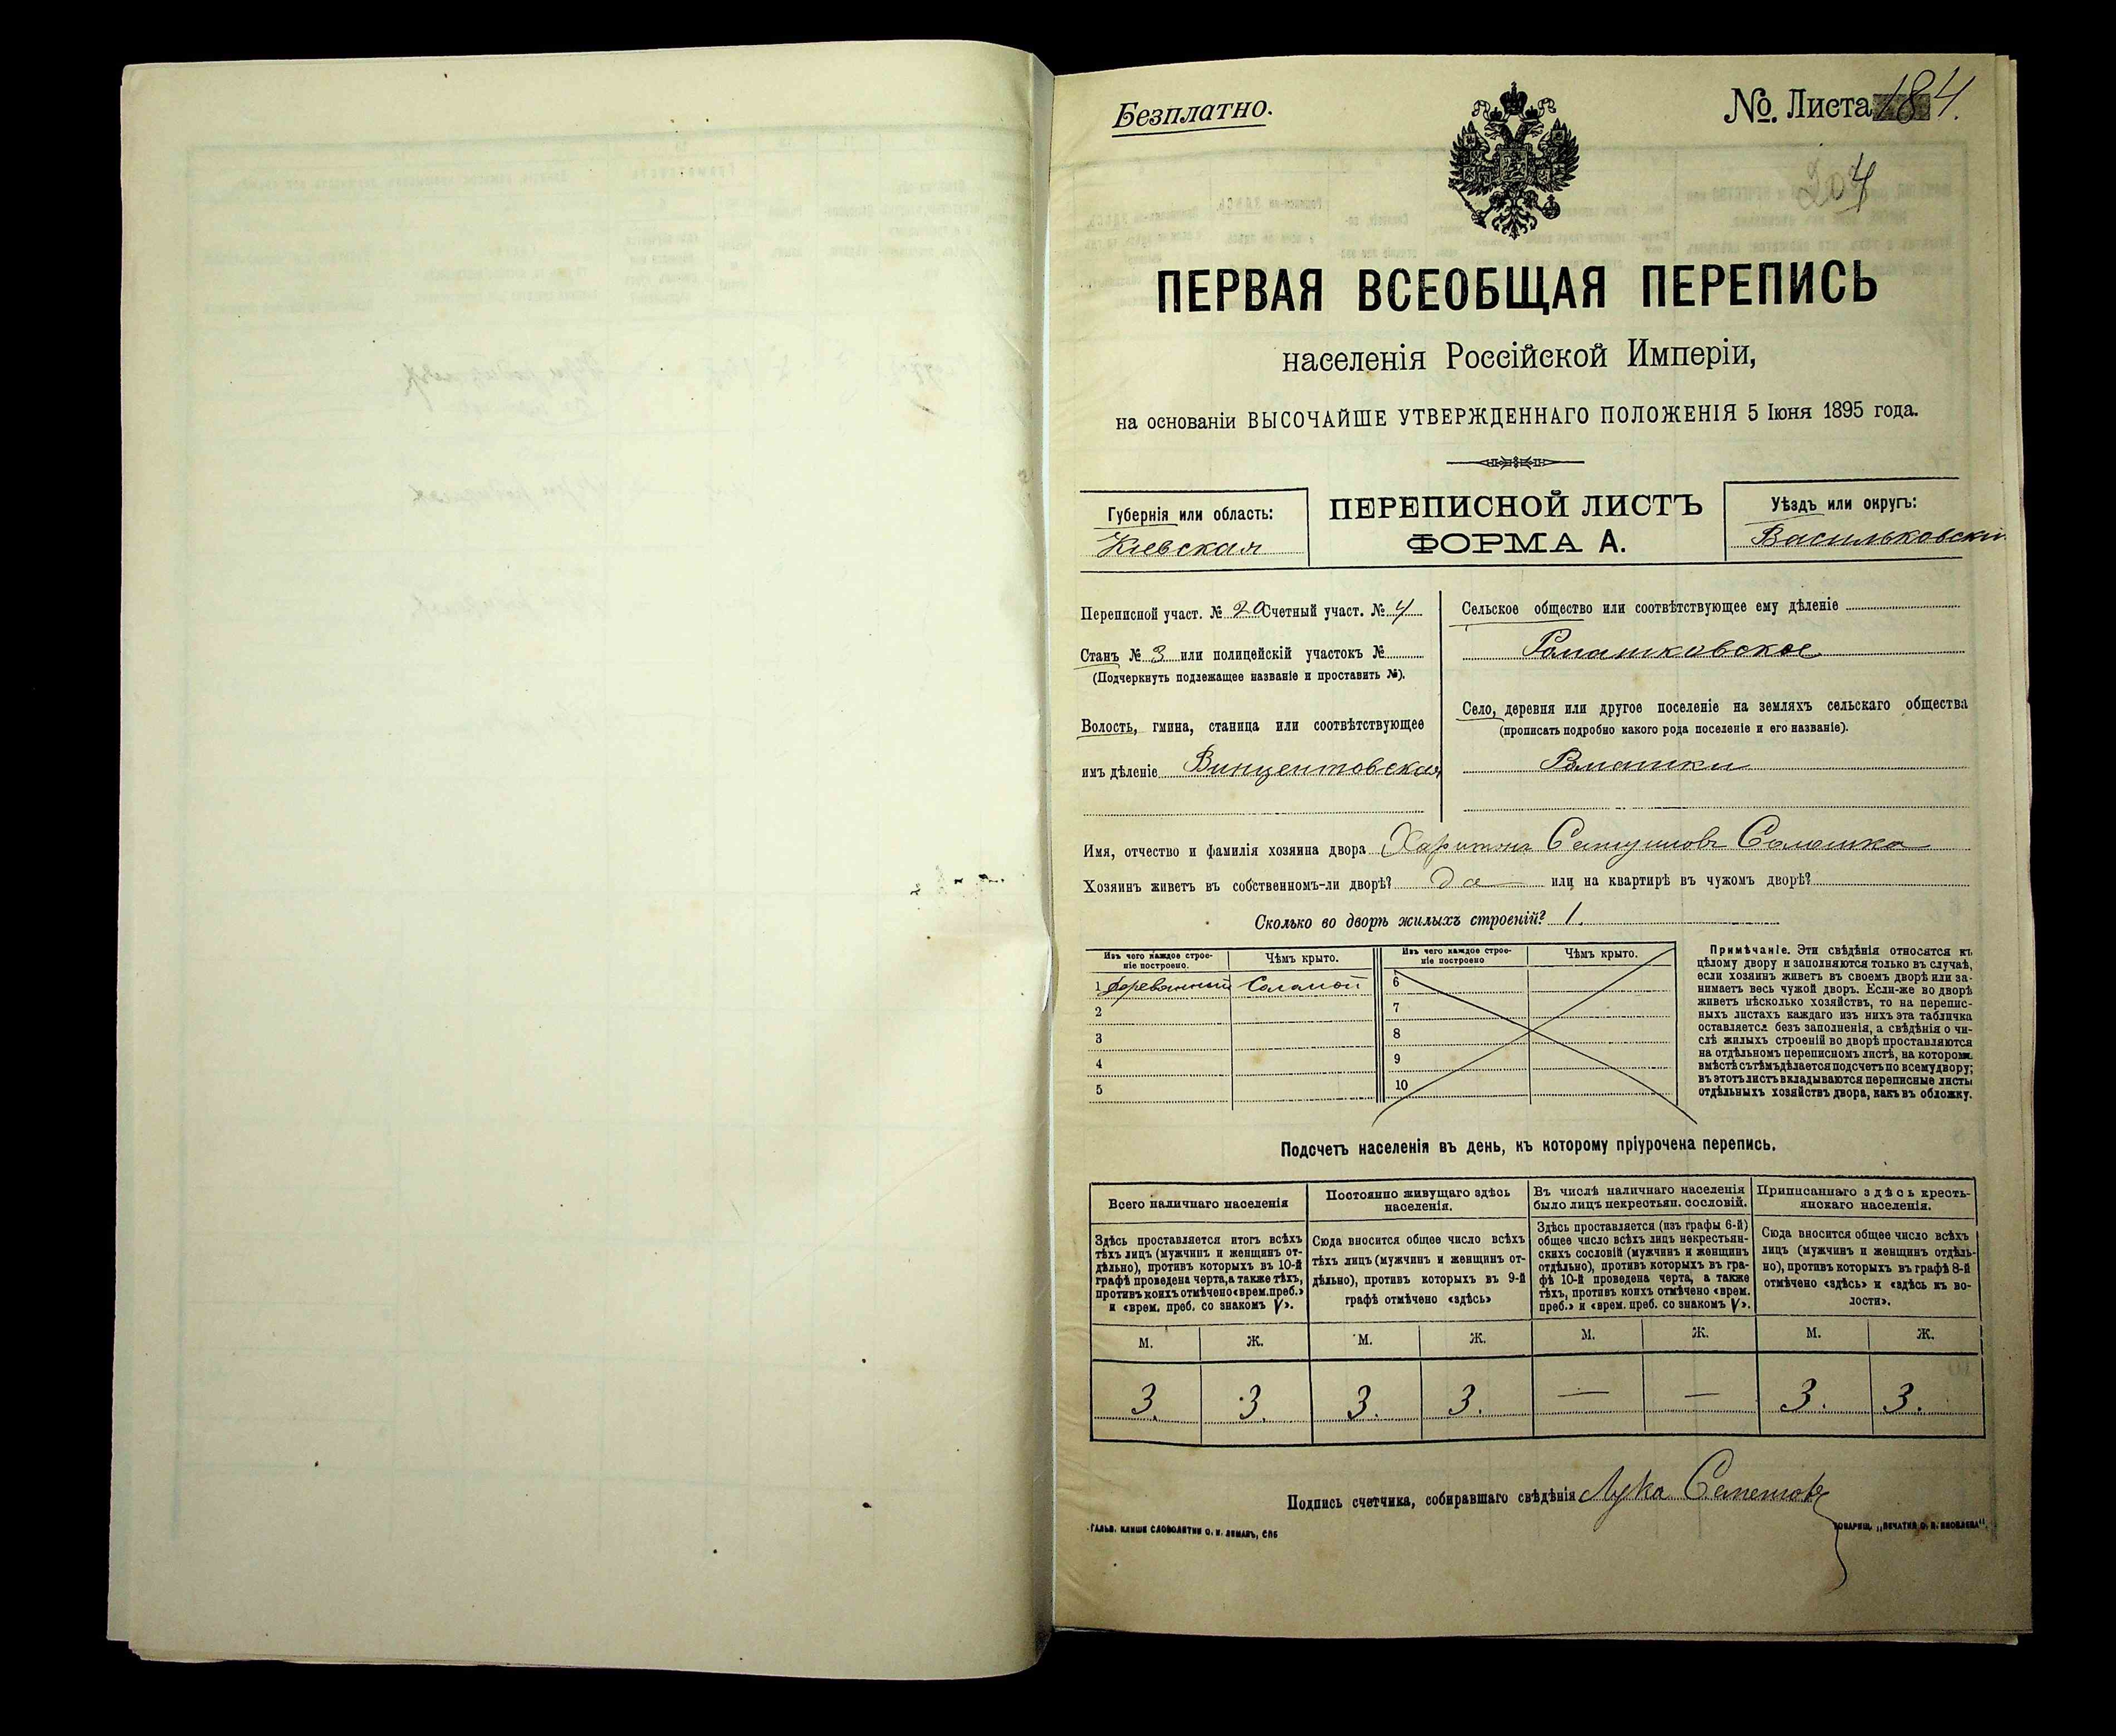 Безплатно.
№. Листа 184.
204
ПЕРВАЯ ВСЕОБЩАЯ ПЕРЕПИСЬ
населенія Россійской Имперіи,
на основаніи ВЫСОЧАЙШЕ УТВЕРЖДЕННАГО ПОЛОЖЕНІЯ 5 Іюня 1895 года.
Губернія или область:
Кіевская
ПЕРЕПИСНОЙ ЛИСТЪ
ФОРМА А.
Уѣздъ или округъ:
Васильковскій
Переписной участ. № 20 Счетный участ. № 4
Станъ № 3 или полицейскій участокъ №
(Подчеркнуть подлежащее названіе и проставить №).
Волость, гмина, станица или соотвѣтствующее
имъ дѣленіе Винцентовская
Сельское общество или соотвѣтствующее ему дѣленіе
Ромашковское
Село, деревня или другое поселеніе на земляхъ сельскаго общества
(прописать подробно какого рода поселеніе и его названіе).
Ромашки
Имя, отчество и фамилія хозяина двора Харитонъ
Хозяинъ живетъ въ собственномъ-ли дворѣ? да или на квартирѣ въ чужомъ дворѣ?
Сколько во дворѣ жилыхъ строеній? 1.
Изъ чего каждое строе-
ніе построено.
Чѣмъ крыто.
Изъ чего каждое строе-
ніе построено
Чѣмъ крыто.
1 деревянный Соломой 6
2 7
3 8
4 9
5 10
Примѣчаніе. Эти свѣдѣнія относятся къ
цѣлому двору и заполняются только въ случаѣ,
если хозяинъ живетъ въ своемъ дворѣ или за-
нимаетъ весь чужой дворъ. Если-же во дворѣ
живетъ нѣсколько хозяйствъ, то на перепис-
ныхъ листахъ каждаго изъ нихъ эта табличка
оставляется безъ заполненія, а свѣдѣнія о чи-
слѣ жилыхъ строеній во дворѣ проставляются
на отдѣльномъ переписномъ листѣ, на котором
вмѣстѣ съ тѣмъ дѣлается подсчетъ по всему двору;
въ этотъ листъ вкладываются переписные листы
отдѣльныхъ хозяйствъ двора, какъ въ обложку.
Подсчетъ населенія въ день, къ которому пріурочена перепись.
Всего наличнаго населенія
Здѣсь проставляется итогъ всѣхъ
тѣхъ лицъ (мужчинъ и женщинъ от-
дѣльно), противъ которыхъ въ 10-й
графѣ проведена черта, а также тѣхъ,
противъ коихъ отмѣчено «врем. преб.»
и «врем. преб. со знакомъ V».
Постоянно живущаго здѣсь
населенія.
Сюда вносится общее число всѣхъ
тѣхъ лицъ (мужчинъ и женщинъ от-
дѣльно), противъ которыхъ въ 9-й
графѣ отмѣчено «здѣсь»
Въ числѣ наличнаго населенія
было лицъ некрестьян. сословій.
Здѣсь проставляется (изъ графы 6-й)
общее число всѣхъ лицъ некрестьян-
скихъ сословій (мужчинъ и женщинъ
отдѣльно), противъ которыхъ въ гра-
фѣ 10-й проведена черта, а также
тѣхъ, противъ коихъ отмѣчено «врем.
преб.» и «врем. преб. со знакомъ V».
Приписаннаго здѣсь кресть-
янскаго населенія.
Сюда вносится общее число всѣхъ
лицъ (мужчинъ и женщинъ отдѣль-
но), противъ которыхъ въ графѣ 8-й
отмѣчено «здѣсь» и «здѣсь къ во-
лости».
М. Ж. М. Ж. М. Ж. М. Ж.
3. 3. 3. 3. — — 3. 3.
Подпись счетчика, собиравшаго свѣдѣнія Лука
ГАЛЬВ. КЛИШЕ СЛОВОЛИТНИ О. И. ЛЕМАНЪ, СПБ